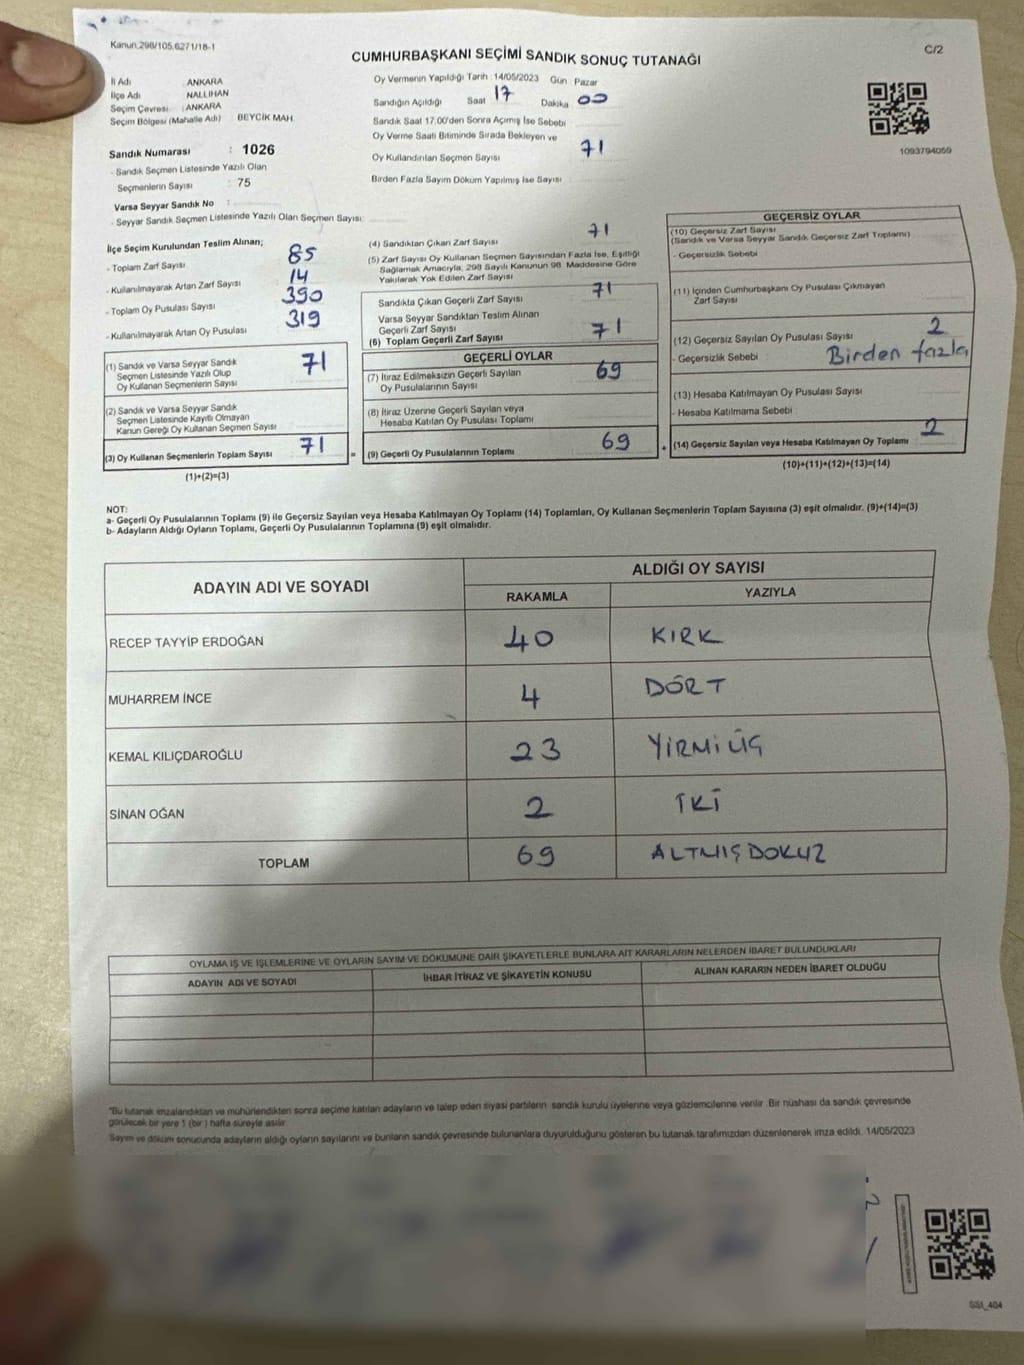 Kanun.298/105,6271/18-1
CUMHURBAŞKANI SEÇİMİ SANDIK SONUÇ TUTANAĞI
C/2
İl Adı : ANKARA
İlçe Adı : NALLIHAN
Seçim Çevresi : ANKARA
Seçim Bölgesi (Mahalle Adı) : BEYCİK MAH.
Oy Vermenin Yapıldığı Tarih :14/05/2023 Gün : Pazar
Sandığın Açıldığı Saat 17 Dakika 00
Sandık Saat 17.00'den Sonra Açımış İse Sebebi
Oy Verme Saati Bitiminde Sırada Bekleyen ve
Oy Kullandırılan Seçmen Sayısı 71
Birden Fazla Sayım Döküm Yapılmış İse Sayısı
1093794059
Sandık Numarası : 1026
- Sandık Seçmen Listesinde Yazılı Olan
Seçmenlerin Sayısı : 75
Varsa Seyyar Sandık No :
- Seyyar Sandık Seçmen Listesinde Yazılı Olan Seçmen Sayısı:
İlçe Seçim Kurulundan Teslim Alınan;
- Toplam Zarf Sayısı 85
- Kullanılmayarak Artan Zarf Sayısı 14
- Toplam Oy Pusulası Sayısı 390
- Kullanılmayarak Artan Oy Pusulası 319
(1) Sandık ve Varsa Seyyar Sandık
Seçmen Listesinde Yazılı Olup
Oy Kullanan Seçmenlerin Sayısı 71
(2) Sandık ve Varsa Seyyar Sandık
Seçmen Listesinde Kayıtlı Olmayan
Kanun Gereği Oy Kullanan Seçmen Sayısı
(3) Oy Kullanan Seçmenlerin Toplam Sayısı 71 =
(1)+(2)=(3)
(4) Sandıktan Çıkan Zarf Sayısı 71
(5) Zarf Sayısı Oy Kullanan Seçmen Sayısından Fazla İse, Eşitliği
Sağlamak Amacıyla, 298 Sayılı Kanunun 98. Maddesine Göre
Yakılarak Yok Edilen Zarf Sayısı
Sandıkta Çıkan Geçerli Zarf Sayısı 71
Varsa Seyyar Sandıktan Teslim Alınan
Geçerli Zarf Sayısı
(6) Toplam Geçerli Zarf Sayısı 71
GEÇERLİ OYLAR
(7) İtiraz Edilmeksizin Geçerli Sayılan
Oy Pusulalarının Sayısı 69
(8) İtiraz Üzerine Geçerli Sayılan veya
Hesaba Katılan Oy Pusulası Toplamı
(9) Geçerli Oy Pusulalarının Toplamı 69 +
GEÇERSİZ OYLAR
(10) Geçersiz Zarf Sayısı
(Sandık ve Varsa Seyyar Sandık Geçersiz Zarf Toplamı)
- Geçersizlik Sebebi
(11) İçinden Cumhurbaşkanı Oy Pusulası Çıkmayan
Zarf Sayısı
(12) Geçersiz Sayılan Oy Pusulası Sayısı 2
- Geçersizlik Sebebi Birden fazla
(13) Hesaba Katılmayan Oy Pusulası Sayısı
- Hesaba Katılmama Sebebi
(14) Geçersiz Sayılan veya Hesaba Katılmayan Oy Toplamı 2
(10)+(11)+(12)+(13)=(14)
NOT:
a- Geçerli Oy Pusulalarının Toplamı (9) ile Geçersiz Sayılan veya Hesaba Katılmayan Oy Toplamı (14) Toplamları, Oy Kullanan Seçmenlerin Toplam Sayısına (3) eşit olmalıdır. (9)+(14)=(3)
b- Adayların Aldığı Oyların Toplamı, Geçerli Oy Pusulalarının Toplamına (9) eşit olmalıdır.
ADAYIN ADI VE SOYADI
ALDIĞI OY SAYISI
RAKAMLA YAZIYLA
RECEP TAYYİP ERDOĞAN 40 KIRK
MUHARREM İNCE 4 DÖRT
KEMAL KILIÇDAROĞLU 23 YİRMİÜÇ
SİNAN OĞAN 2 İKİ
TOPLAM 69 ALTMIŞDOKUZ
OYLAMA İŞ VE İŞLEMLERİNE VE OYLARIN SAYIM VE DÖKÜMÜNE DAİR ŞİKAYETLERLE BUNLARA AİT KARARLARIN NELERDEN İBARET BULUNDUKLARI
ADAYIN ADI VE SOYADI İHBAR İTİRAZ VE ŞİKAYETİN KONUSU ALINAN KARARIN NEDEN İBARET OLDUĞU
"Bu tutanak imzalandıktan ve mühürlendikten sonra seçime katılan adayların ve talep eden siyasi partilerin sandık kurulu üyelerine veya gözlemcilerine verilir. Bir nüshası da sandık çevresinde
görülecek bir yere 1 (bir) hafta süreyle asılır.
Sayım ve döküm sonucunda adayların aldığı oyların sayılarını ve bunların sandık çevresinde bulunanlara duyurulduğunu gösteren bu tutanak tarafımızdan düzenlenerek imza edildi. 14/05/2023
SS1_404